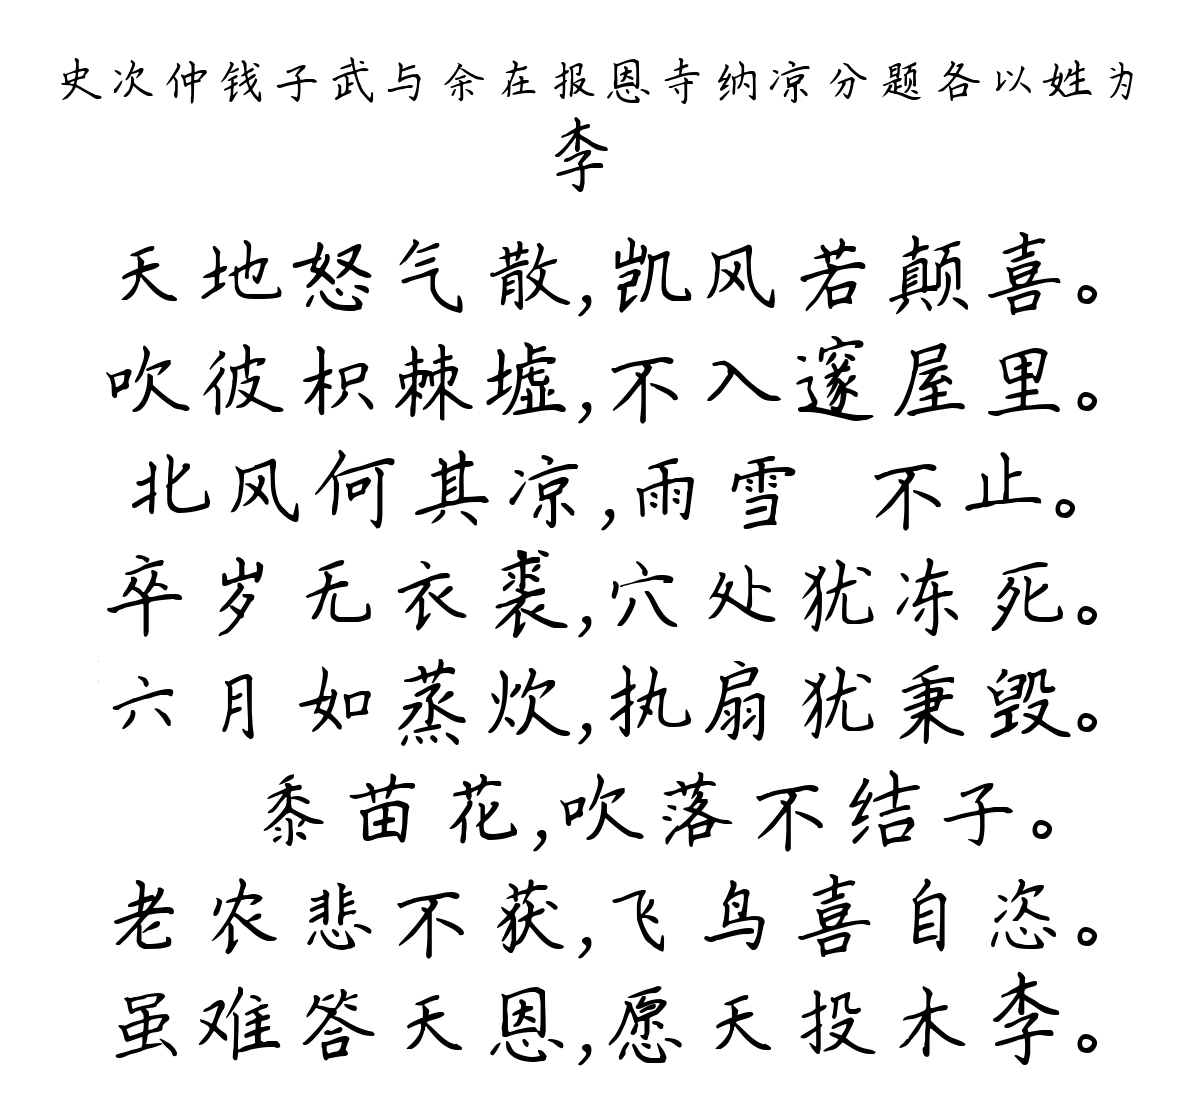 史次仲钱子武与余在报恩寺纳凉分题各以姓为
李
天地怒气散,凯风若颠喜。
吹彼枳棘墟,不入邃屋里。
北风何其凉,雨雪 不止。
卒岁无衣裘,穴处犹冻死。
六月如蒸炊,执扇犹秉毁。
黍苗花,吹落不结子。
老农悲不获,飞鸟喜自恣。
虽难答天恩,愿天投木李。